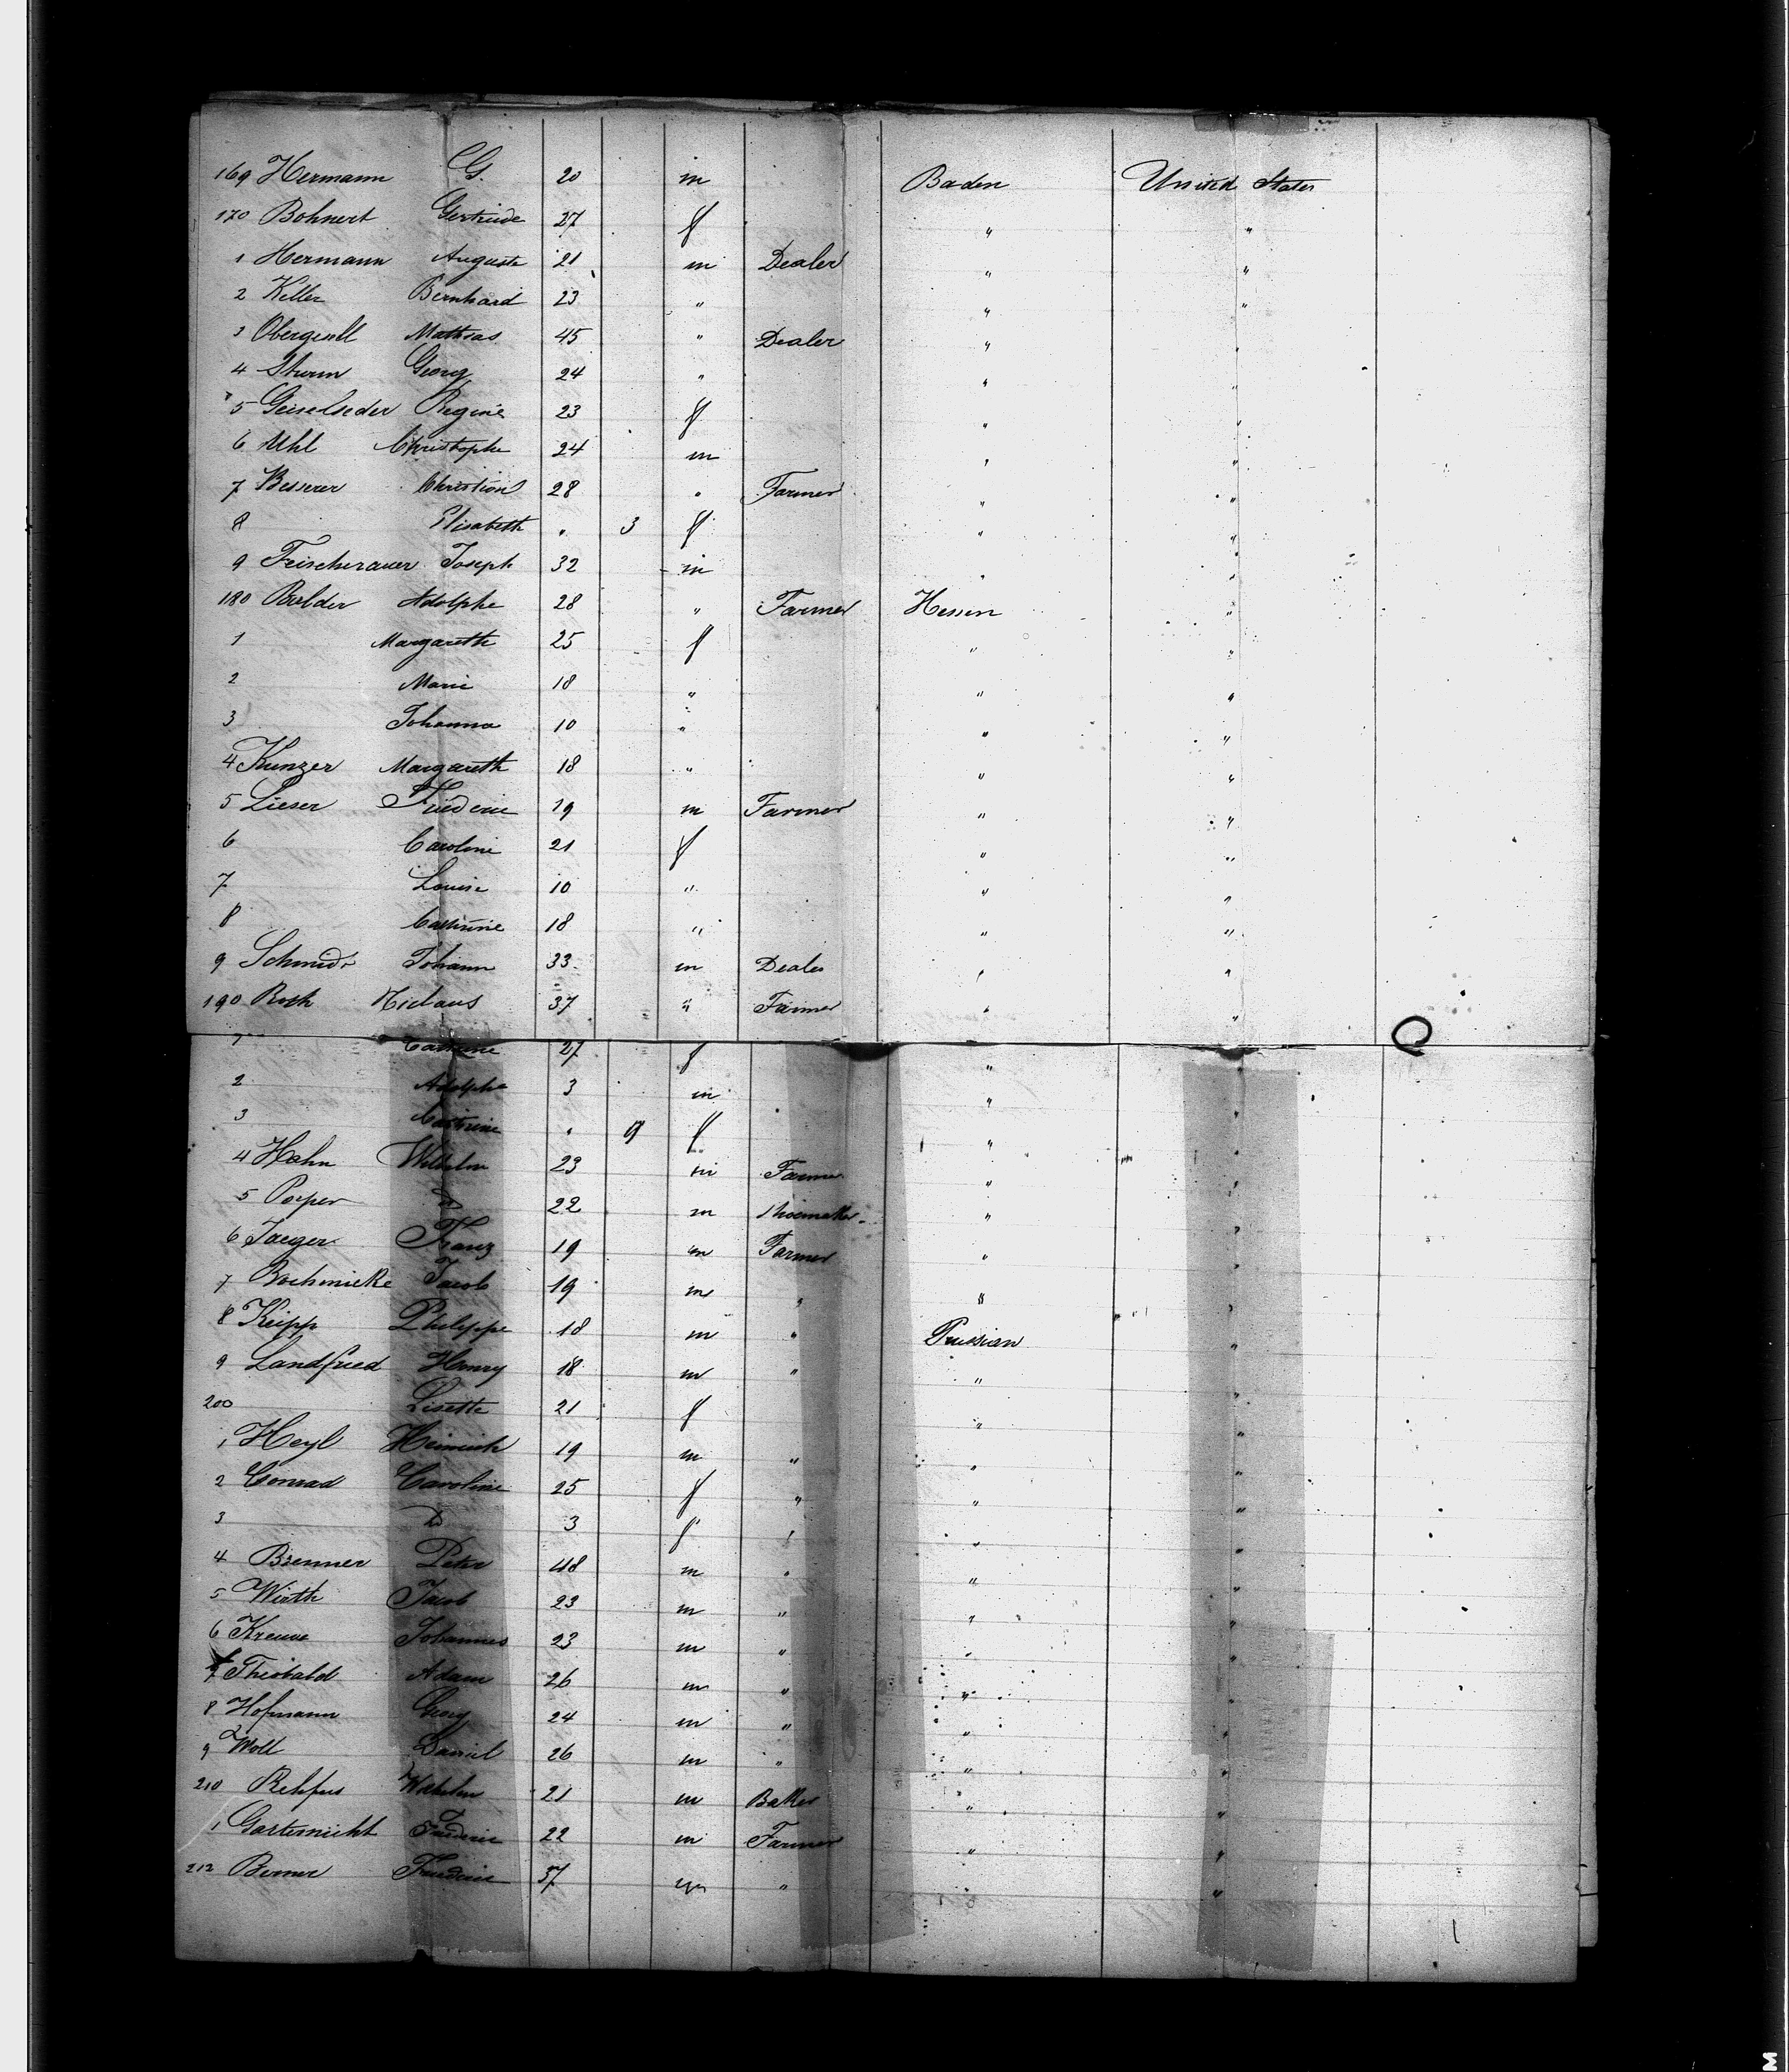 169 Hermann G. 20 m Baden United States
170 Bohnert Gertrude 27 f " "
1 Hermann Auguste 21 m Dealer " "
2 Keller Bernhard 23 " " "
3 Obergsell Mathias 45 " Dealer " "
4 Sturm Georg 24 " " "
5 Geiselseder Regine 23 f " "
6 Uhl Christophe 24 m " "
7 Besserer Christian 28 " Farmer " "
8 Elisabeth " 3 f " "
9 Feischerauer Joseph 32 m " "
180 Adolphe 28 " Farmer Hessen "
1 Margareth 25 f " "
2 Marie 18 " " "
3 Johanna 10 " " "
4 Kunzer Margareth 18 " " "
5 Lieser Friederic 19 m Farmer " "
6 Caroline 21 f " "
7 Louise 10 " " "
8 Cathrine 18 " " "
9 Schmidt Johann 33 m Dealer " "
190 Roth Niclaus 37 " Farmer " "
1 Cathrine 27 f "
2 Adolphe 3 m " "
3 Cathrine " 9 f " "
4 Hahn Wilhelm 23 m Farmer " "
5 Do 22 m Shoemaker " "
6 Jaeger Franz 19 m Farmer " "
7 Jacob 19 m " " "
8 Keipp Philippe 18 m " Prussian "
9 Landfried Henry 18 m " " "
200 Lisette 21 f " "
1 Heyl Heinrich 19 m " " "
2 Conrad Caroline 25 f " " "
3 Do 3 f " " "
4 Brenner Peter 48 m " " "
5 Wirth Jacob 23 m " " "
6 Johannes 23 m " " "
7 Theobald Adam 26 m " " "
8 Hofmann Georg 24 m " " "
9 Woll Daniel 26 m " " "
210 Rehfus Wilhelm 21 m Baker " "
1 Gartemicht Frederic 22 m Farmer " "
212 Berner Frederic 37 m " " "